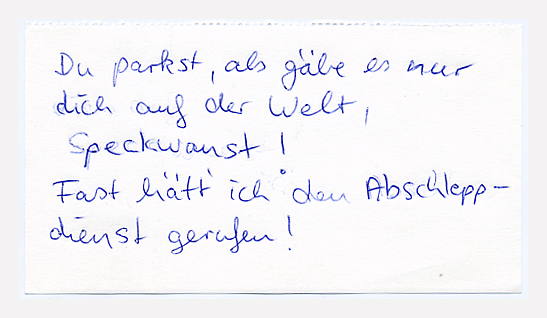 Du parkst, als gäbe es nur
dich auf der Welt,
Speckwanst!
Fast hätt' ich den Abschlepp-
dienst gerufen!